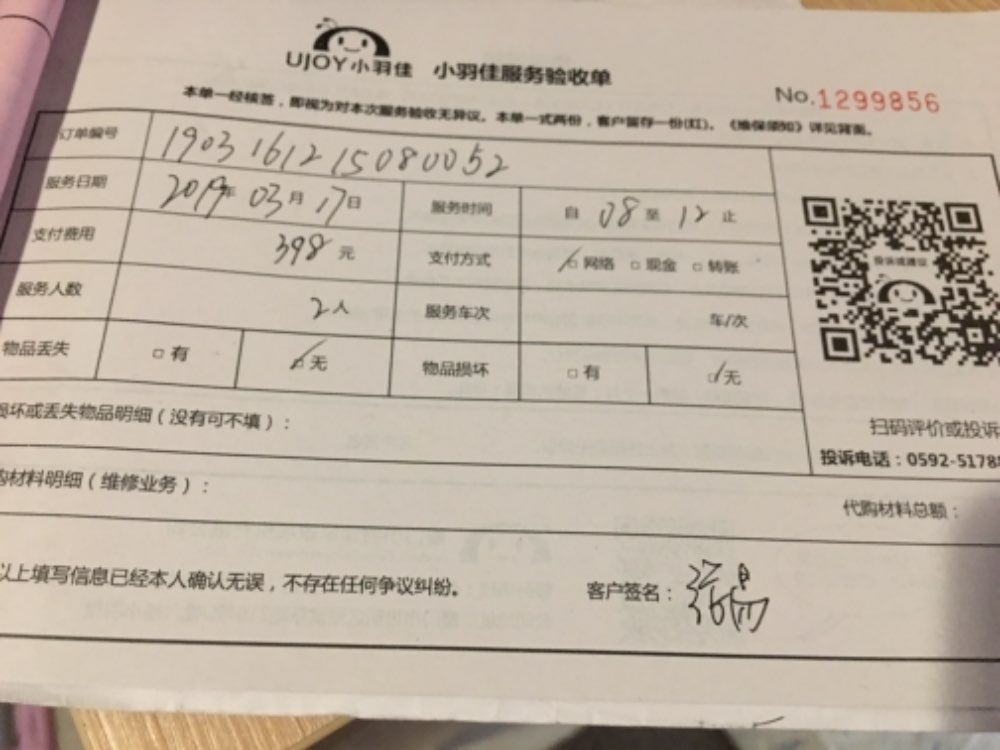 UJOY小羽佳 小羽佳服务验收单
No.1299856
本单一经核签，即视为对本次服务验收无异议。本单一式两份，客户留存一份(红)。《维保须知》详见背面。
订单编号 1903161215080052
服务日期 2019年 03月 17日 服务时间 自 08 至 12 止
支付费用 398 元 支付方式 □网络 □现金 □转账
投诉或建议
服务人数 2人 服务车次 车/次
物品丢失 □有 □无 物品损坏 □有 □无
损坏或丢失物品明细（没有可不填）：
扫码评价或投诉
投诉电话：0592-5178
购材料明细（维修业务）：
代购材料总额：
以上填写信息已经本人确认无误，不存在任何争议纠纷。 客户签名：